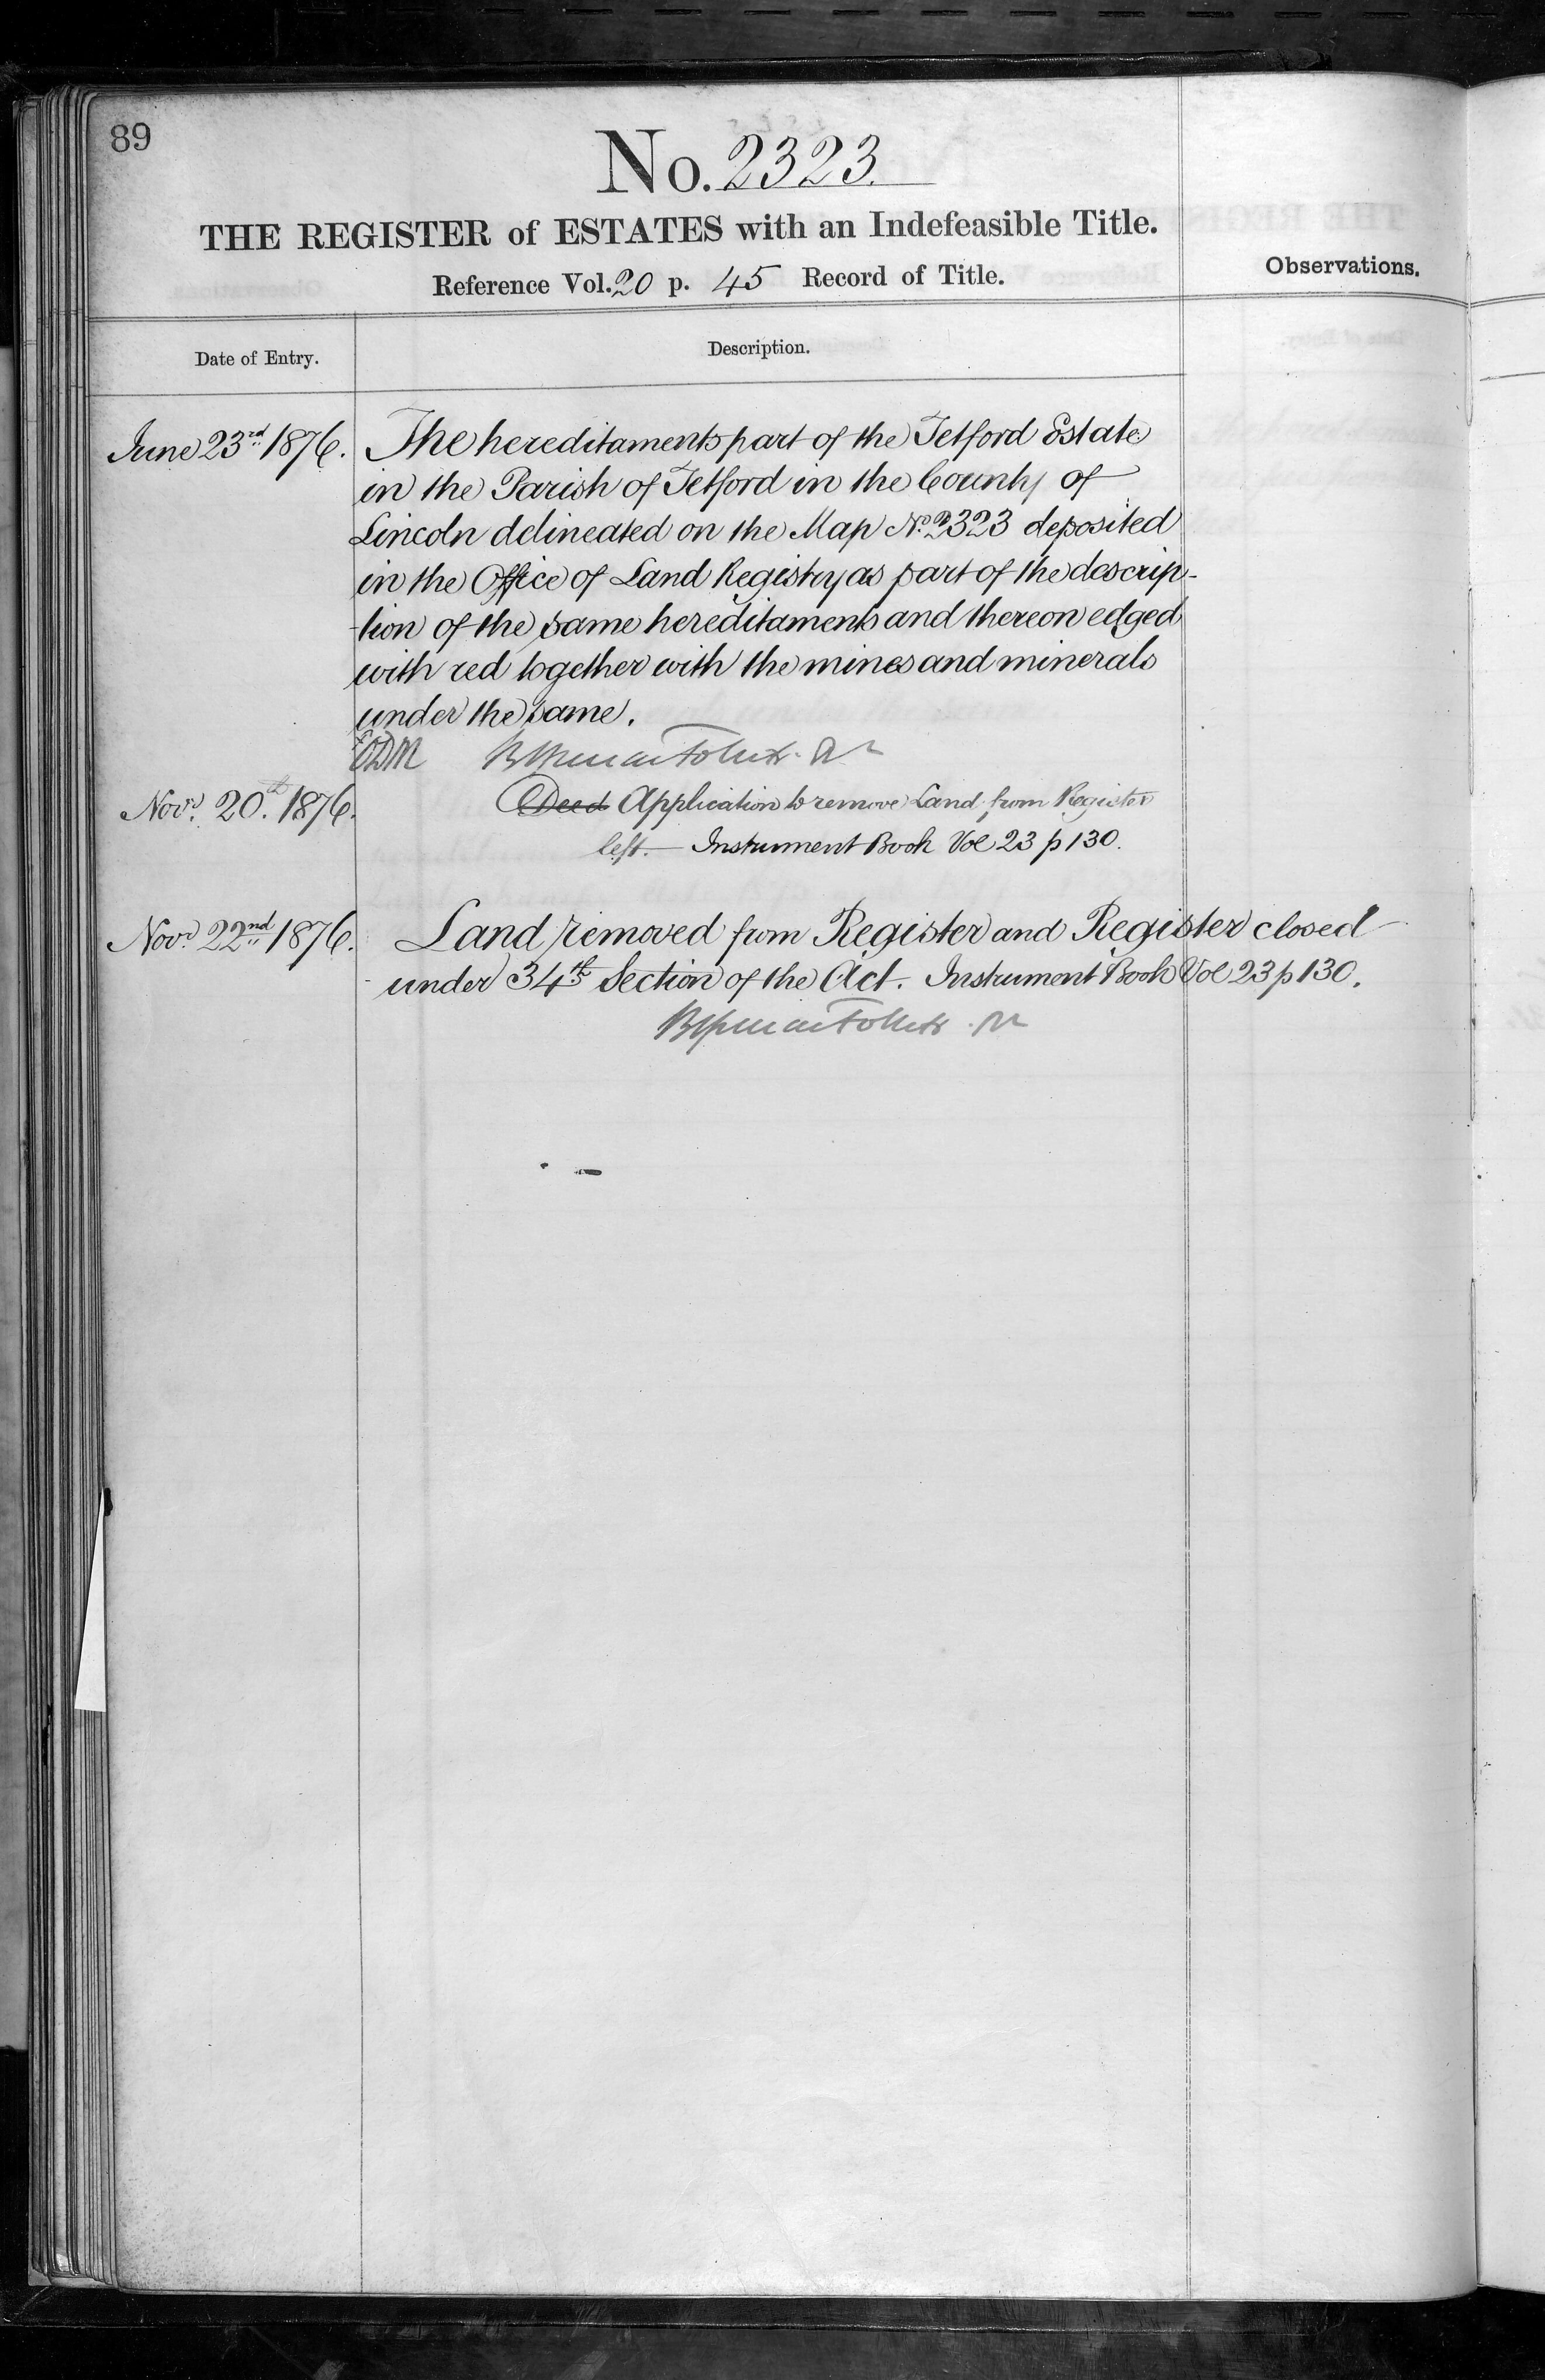 89
No. 2323.
THE REGISTER of ESTATES with an Indefeasible Title.
Reference Vol. 20 p. 45 Record of Title.
Observations.
Date of Entry.
Description.
June 23rd 1876.
The hereditaments part of the Tetford Estate
in the Parish of Tetford in the County of
Lincoln delineated on the Map No. 2323 deposited
in the Office of Land Registry as part of the descrip-
-tion of the same hereditaments and thereon edged
with red together with the mines and minerals
under the same.
Novr. 20th. 1876.
Deed Application to remove Land from Register
left. — Instrument Book Vol 23 p 130.
Novr. 22nd 1876.
Land removed from Register and Register closed
under 34th Section of the Act. Instrument Book Vol 23 p 130.